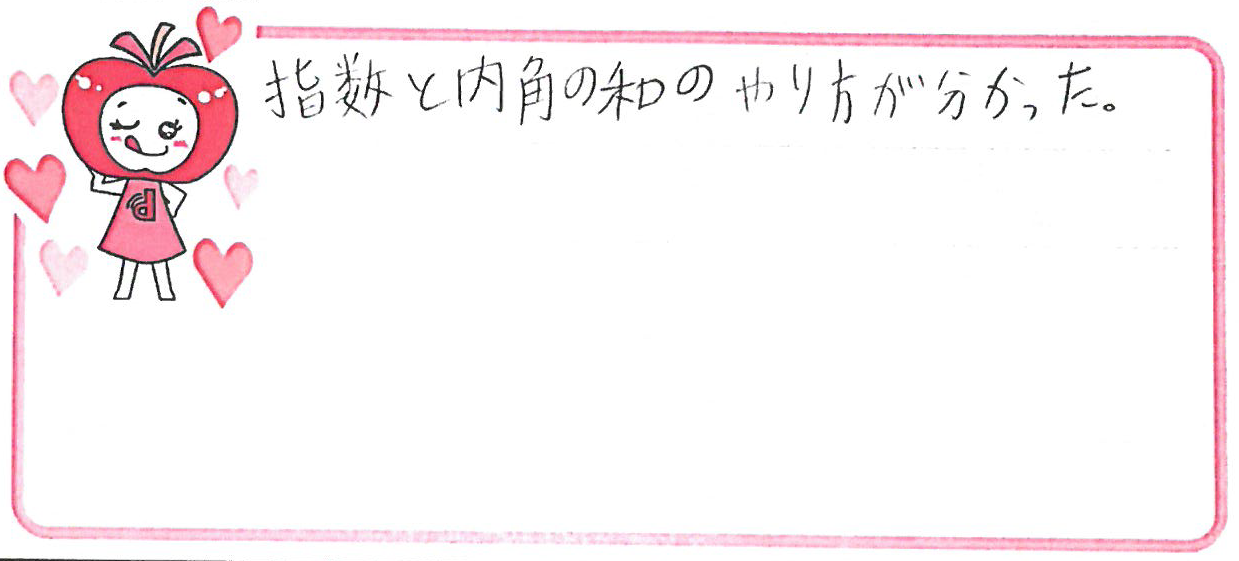 指数と内角の和のやり方が分かった。